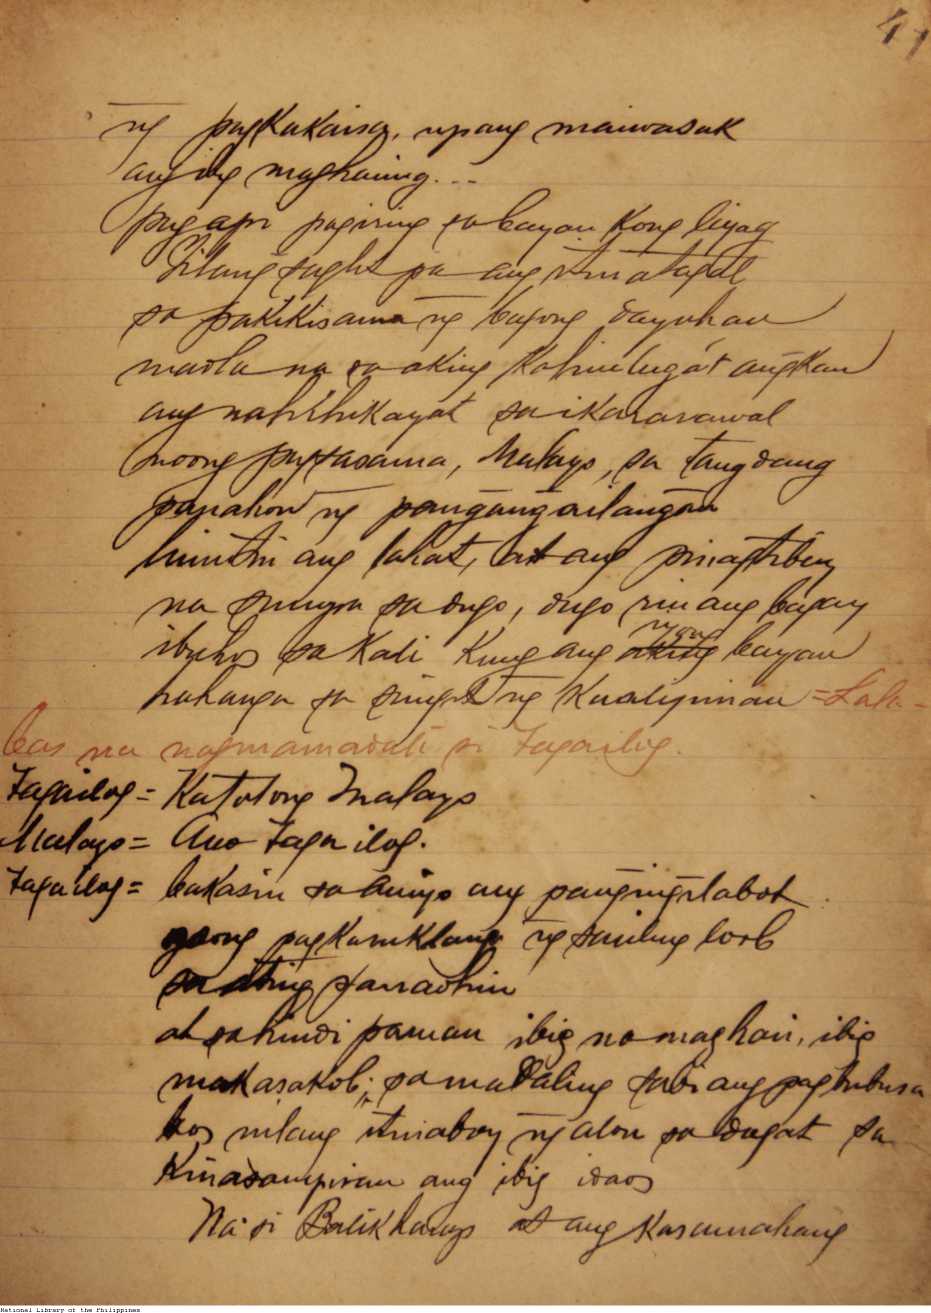 41
ng pagkakaisa, upang maiwasak
ang ibig maghaing...
pag api pagiring sa bayan kong liyag
Ilang saglit pa ang itinatagal
sa pakikisama ng bagong dayuhan
madla na sa aking kahinlugát angkan
ang nahihikayat sa ikararawal
noong pagsasama, Malayo, sa tangdang
panahon ng pangangailangan
limitin ang lahat, at ang pinagtibay
na sinumpa sa dugo, dugo rin ang bagay
ibuhos sa Kali kung ang aking iyong bayan
sa singil ng Kaalipinan = Lala-
bas na nagmamadali si Tagailog.
Tagailog = Katotong Malayo
Malayo = Ano Taga ilog.
Taga ilog = bakasin sa Aniyo ang pangingilabot
ng sariling loob
sa ating
at sa hindi paman ibig na maghari, ibig
makasakob; sa madaling sabi ang pagbubusa
bos nilang itinaboy ng alon sa dagat sa
Kinadampiran ang ibig idaos
Na si Balikharap at ang Kasamahang
National Library of the Philippines